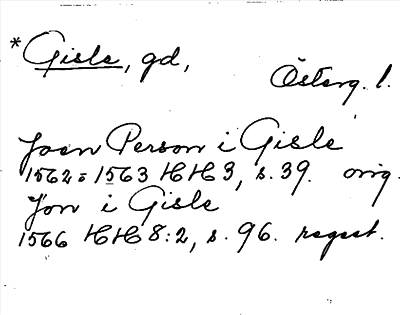 *Gisle, gd,
Österg. l.
Joen Person i Gisle
1562=1563 HH3, s. 39. orig.
Jon i Gisle
1566 HH8:2, s. 96. regest.